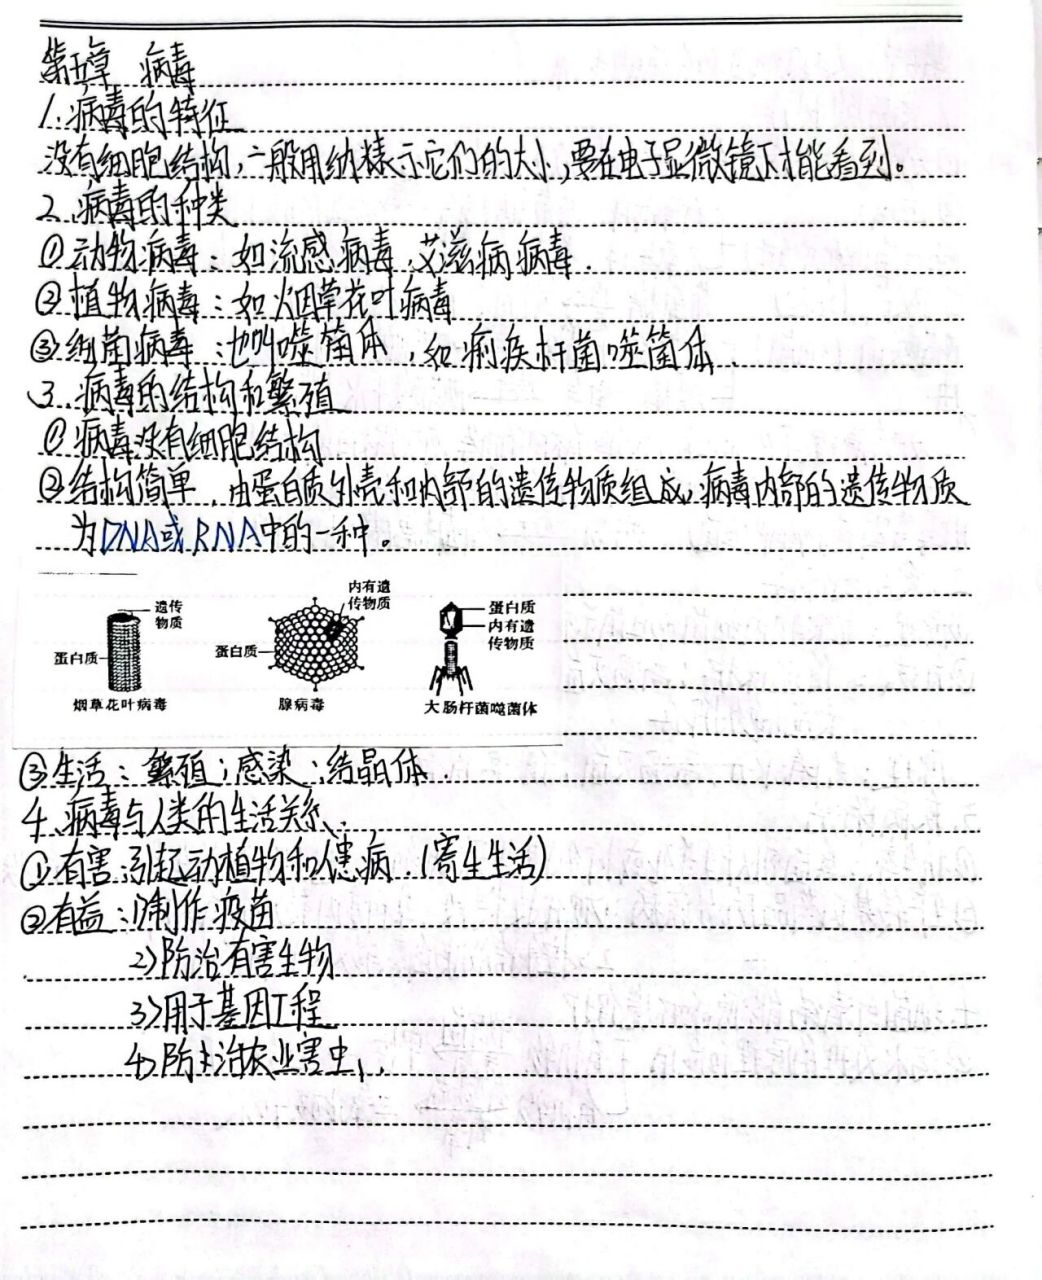 第五章 病毒
1.病毒的特征
没有细胞结构,一般用纳米表示它们的大小,要在电子显微镜下才能看到。
2.病毒的种类
①动物病毒:如流感病毒、艾滋病病毒.
②植物病毒:如烟草花叶病毒
③细菌病毒:也叫噬菌体,如痢疾杆菌噬菌体
3.病毒的结构和繁殖
①病毒没有细胞结构
②结构简单,由蛋白质外壳和内部的遗传物质组成,病毒内部的遗传物质
为DNA或RNA中的一种。
遗传物质
蛋白质
烟草花叶病毒
内有遗传物质
蛋白质
腺病毒
蛋白质
内有遗传物质
大肠杆菌噬菌体
③生活:繁殖;感染;结晶体.
4.病毒与人类的生活关系.
①有害:引起动植物和患病.(寄生生活)
②有益:1)制作疫苗
2)防治有害生物
3)用于基因工程
4)防治农业害虫.